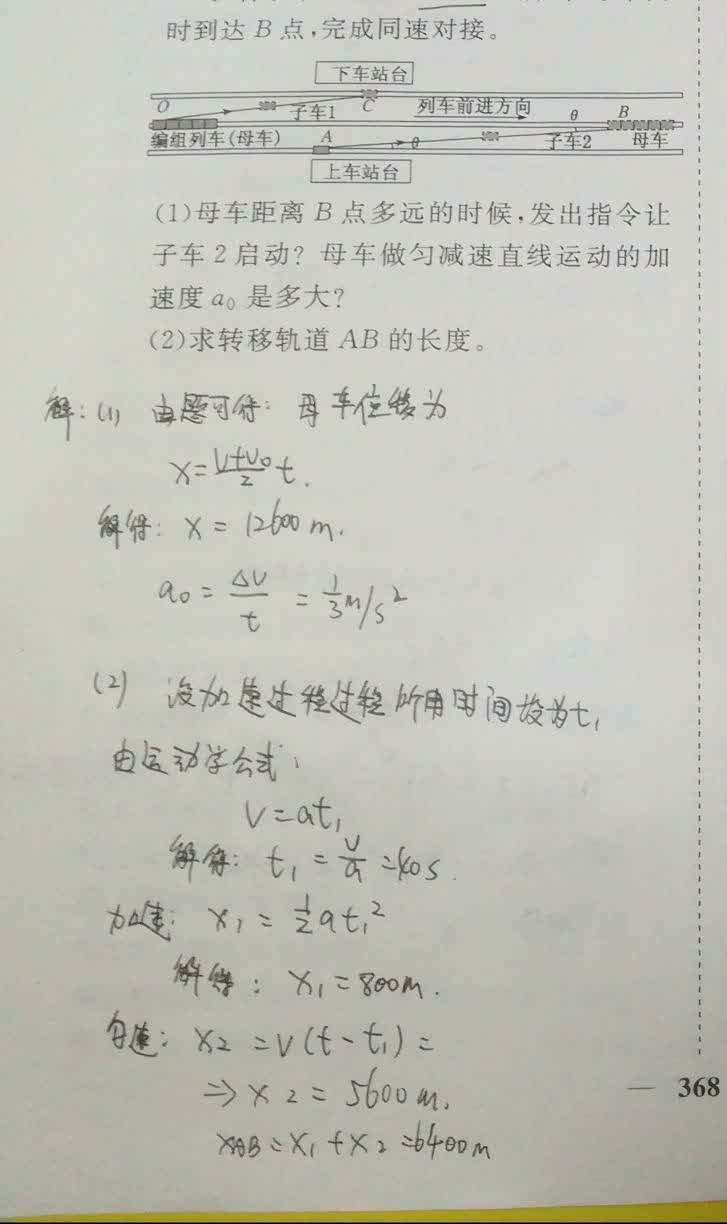 时到达B点,完成同速对接。
下车站台
O 子车1 C 列车前进方向 θ B
编组列车(母车) A θ 子车2 母车
上车站台
(1)母车距离B点多远的时候,发出指令让
子车2启动?母车做匀减速直线运动的加
速度a₀是多大?
(2)求转移轨道AB的长度。
解:(1) 由题可得:母车位移为
x=\frac{v+v₀}{2}t.
解得:x=12600m.
a₀=\frac{Δv}{t}=\frac{1}{3}m/s²
(2) 设加速过程过程所用时间设为t₁
由运动学公式:
v=at₁
解得:t₁=\frac{v}{a}=40s.
加速:x₁=\frac{1}{2}at₁²
解得:x₁=800m.
匀速:x₂=v(t-t₁)=
⇒x₂=5600m.
x_{AB}=x₁+x₂=6400m
— 368